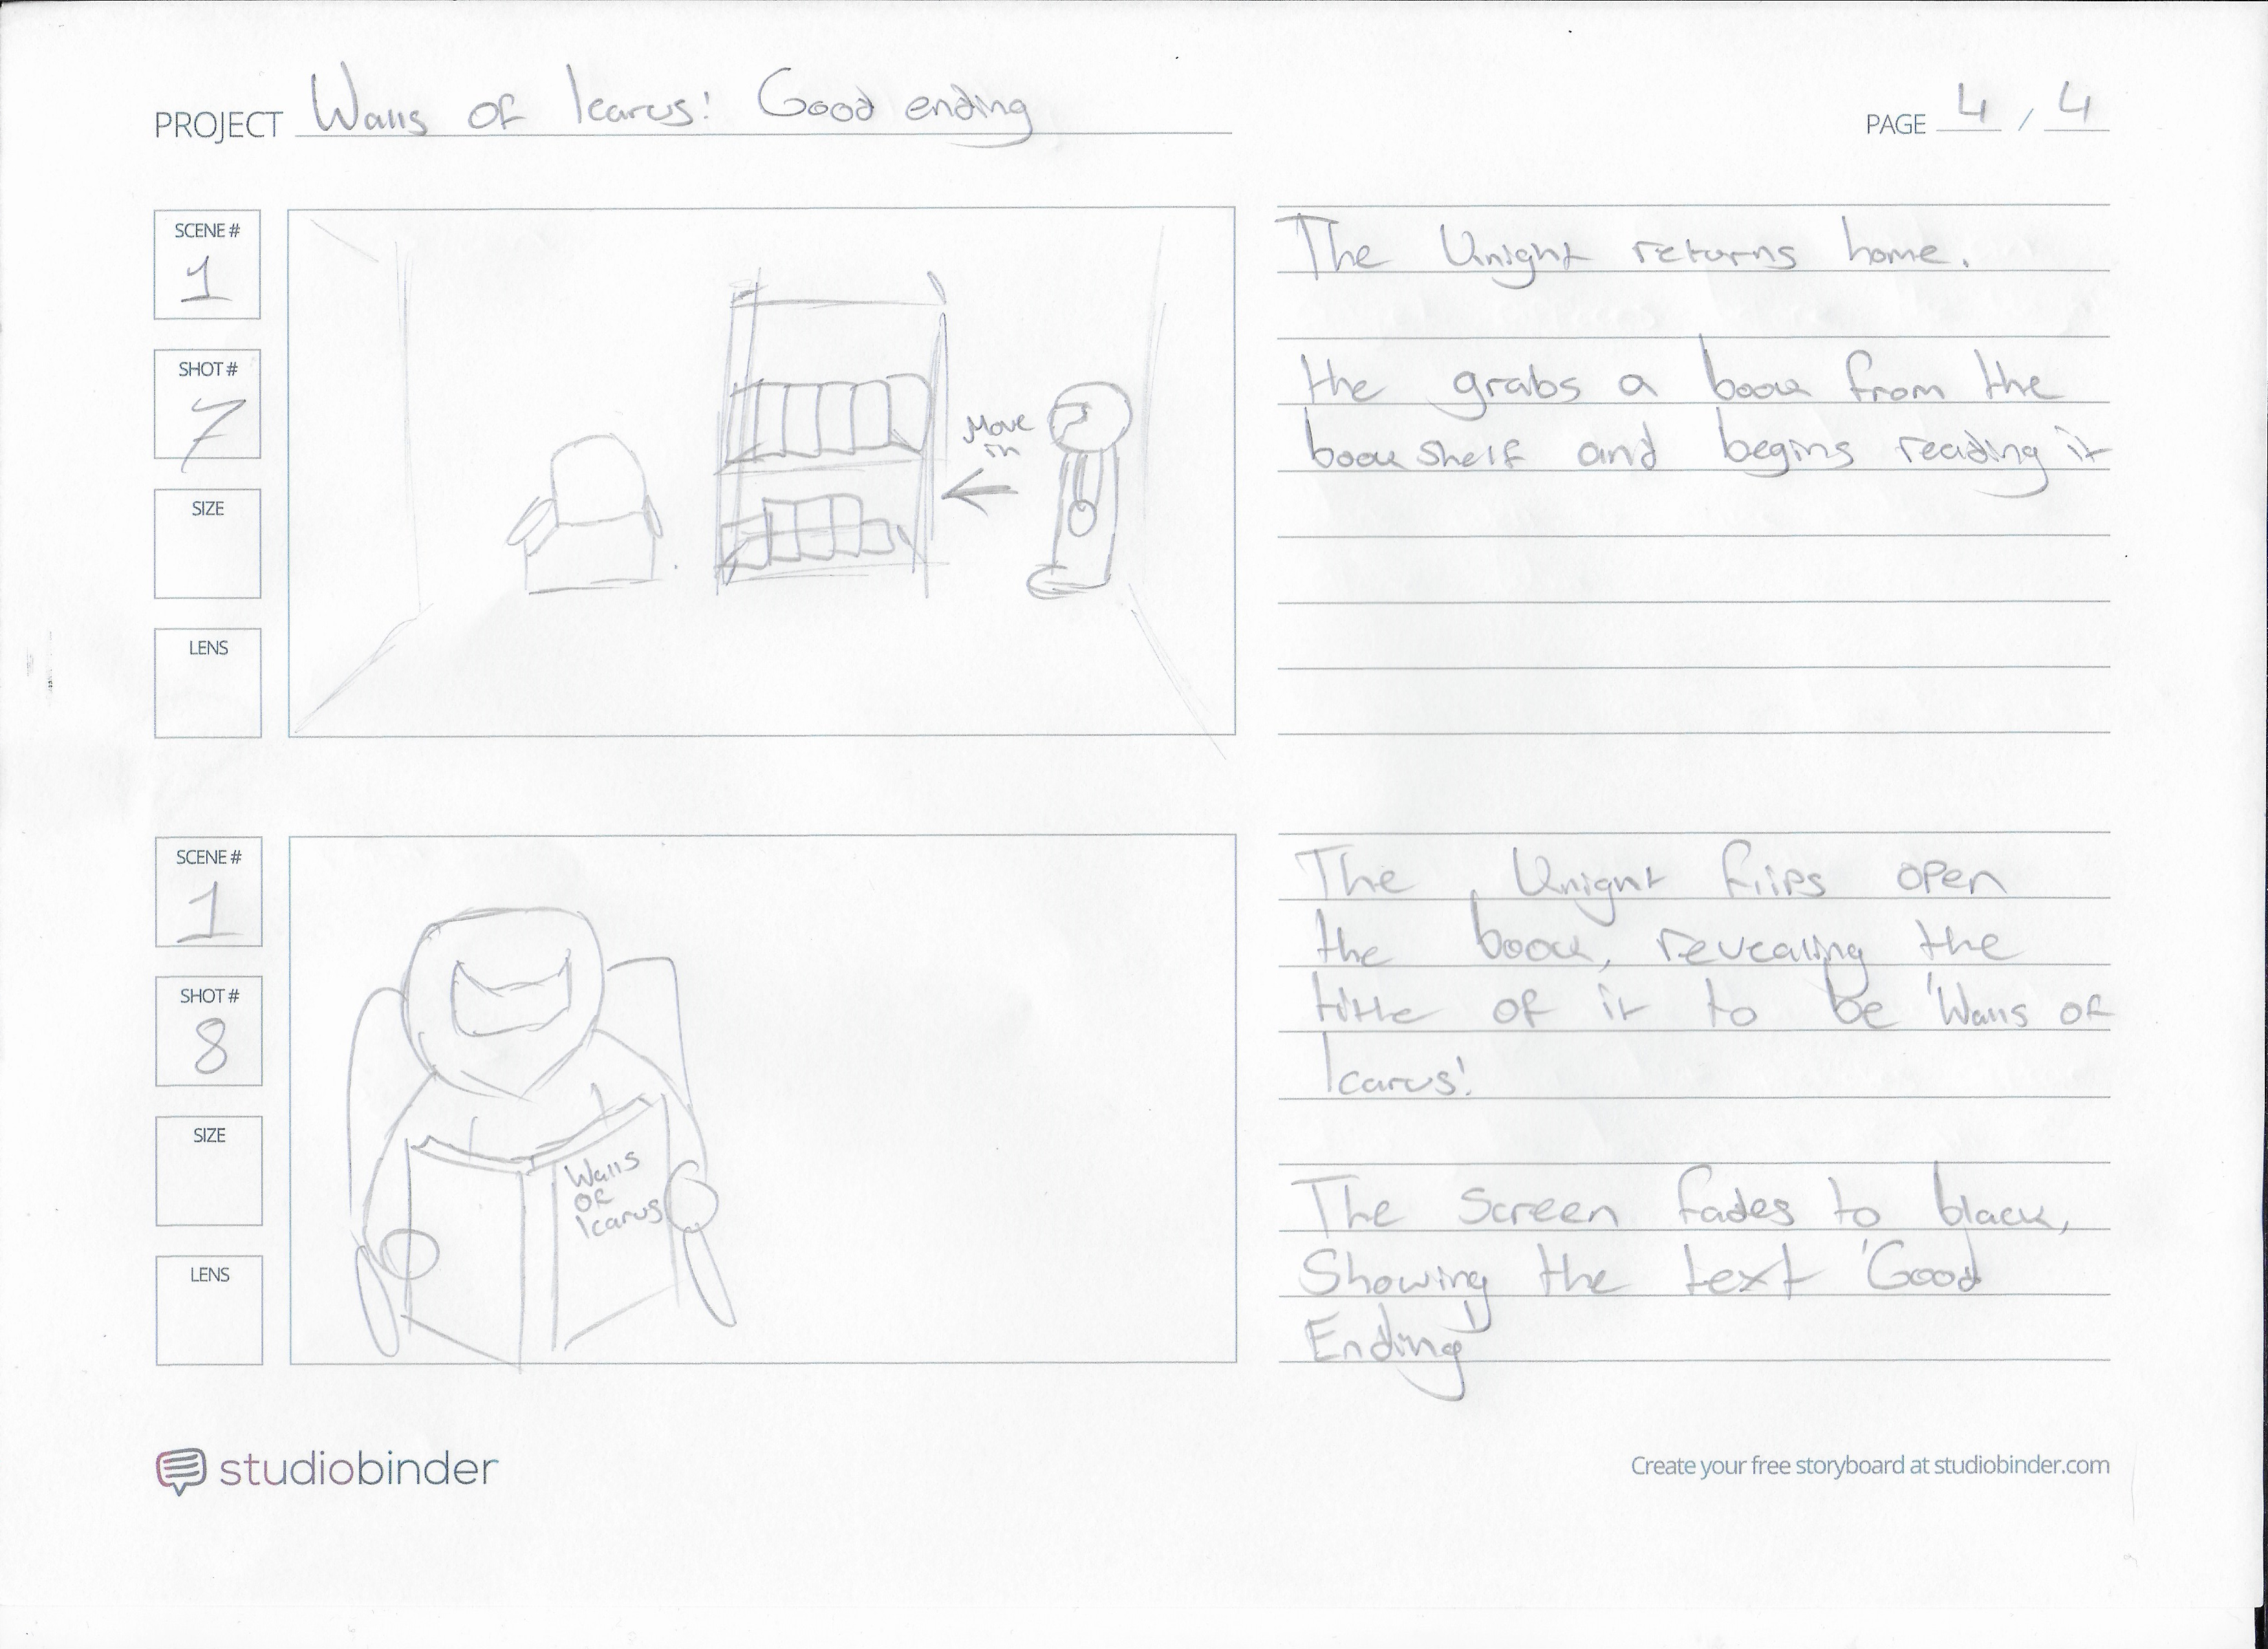 PROJECT Walls of Icarus: Good ending
PAGE 4 / 4
SCENE #
1
SHOT #
7
SIZE
LENS
Move
in
The Knight returns home.
the grabs a book from the
bookshelf and begins reading it
SCENE #
1
SHOT #
8
SIZE
LENS
Walls
of
Icarus
The Knight flips open
the book, revealing the
title of it to be 'Walls of
Icarus'.
The screen fades to black,
Showing the text 'Good
Ending'
studiobinder
Create your free storyboard at studiobinder.com